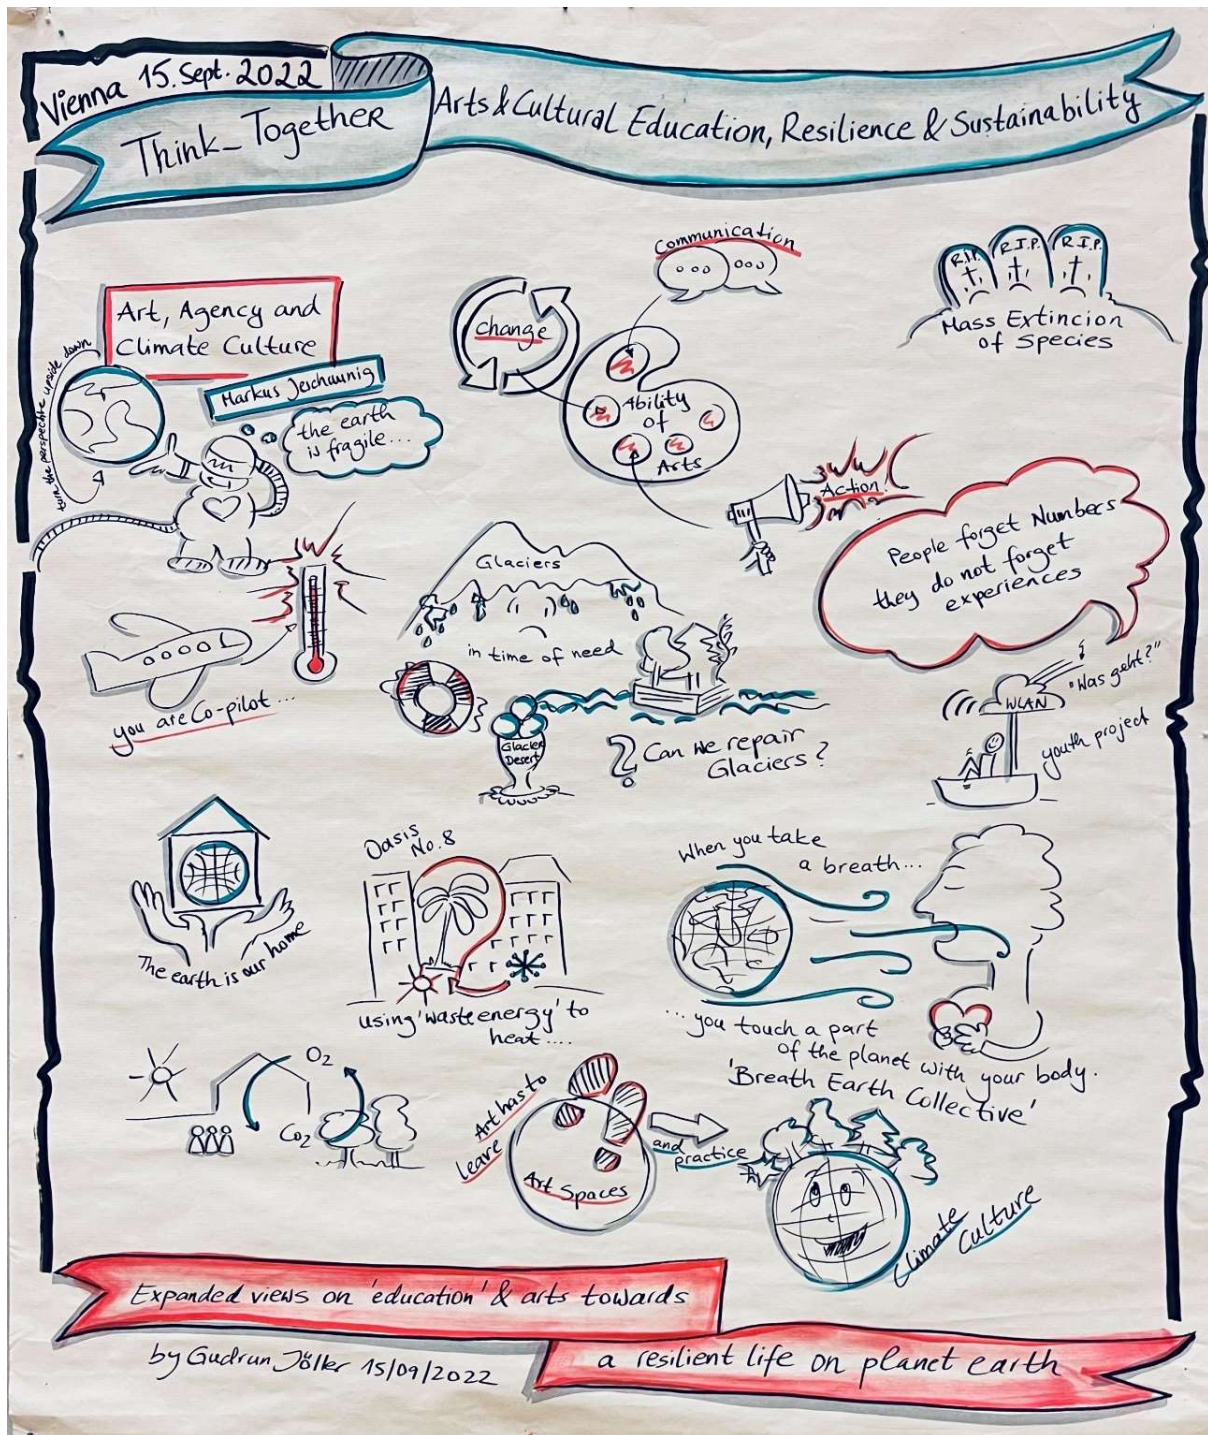 Vienna 15. Sept. 2022
Think_Together
Arts & Cultural Education, Resilience & Sustainability
Communication
R.I.P.
R.I.P.
R.I.P.
Mass Extincion
of Species
Art, Agency and
Climate Culture
Markus Jeschaunig
turn the perspective upside down
the earth
is fragile...
change
Ability
of
Arts
Action!
People forget Numbers
they do not forget
experiences
Glaciers
in time of need
you are Co-pilot...
Glacier
Desert
? Can we repair
Glaciers?
WLAN
"Was geht?"
youth project
The earth is our home
Oasis
No. 8
using 'waste energy' to
heat....
When you take
a breath...
...you touch a part
of the planet with your body.
'Breath Earth Collective'
O2
CO2
Art has to
leave
Art Spaces
and
practice
Climate
Culture
Expanded views on 'education' & arts towards
a resilient life on planet earth
by Gudrun Jöller 15/09/2022